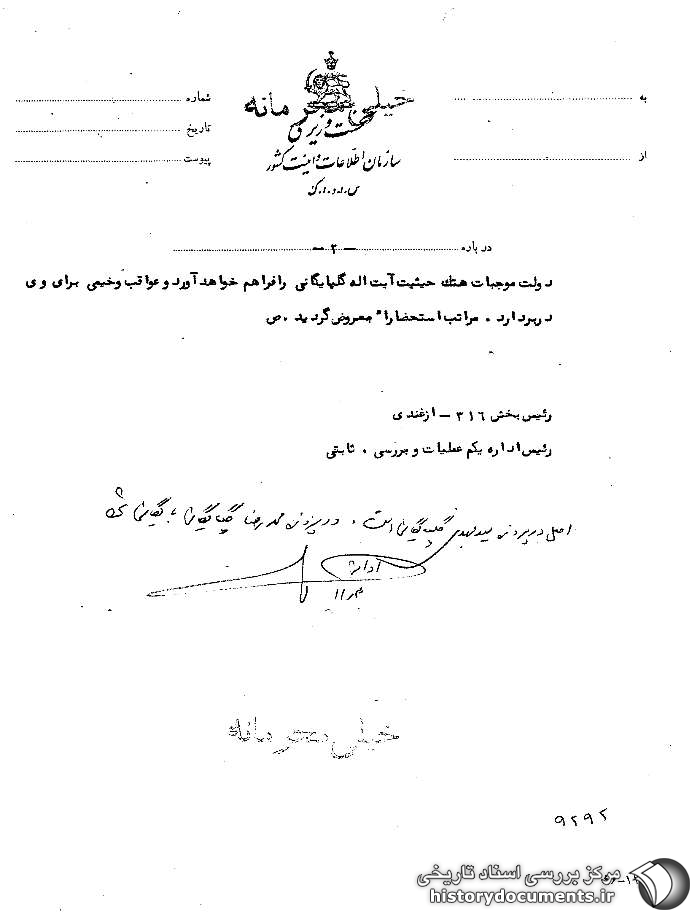 خیلی محرمانه
به
شماره
نخست وزیری
تاریخ
از
سازمان اطلاعات و امنیت کشور
پیوست
س.ا.و.ا.ک
درباره
- ۲ -
دولت موجبات هتك حیثیت آیت اله گلپایگانی را فراهم خواهد آورد و عواقب وخیمی برای وی
دربردارد . مراتب استحضارا" معروض گردید . ص
رئیس بخش ۳۱۶ - ازغندی
رئیس اداره یکم عملیات و بررسی . ثابتی
اصل در پرونده سید مهدی گلپایگانی است . در پرونده محمدرضا گلپایگانی بایگانی شود
خیلی محرمانه
۹۲۹۲
مرکز بررسی اسناد تاریخی
historydocuments.ir